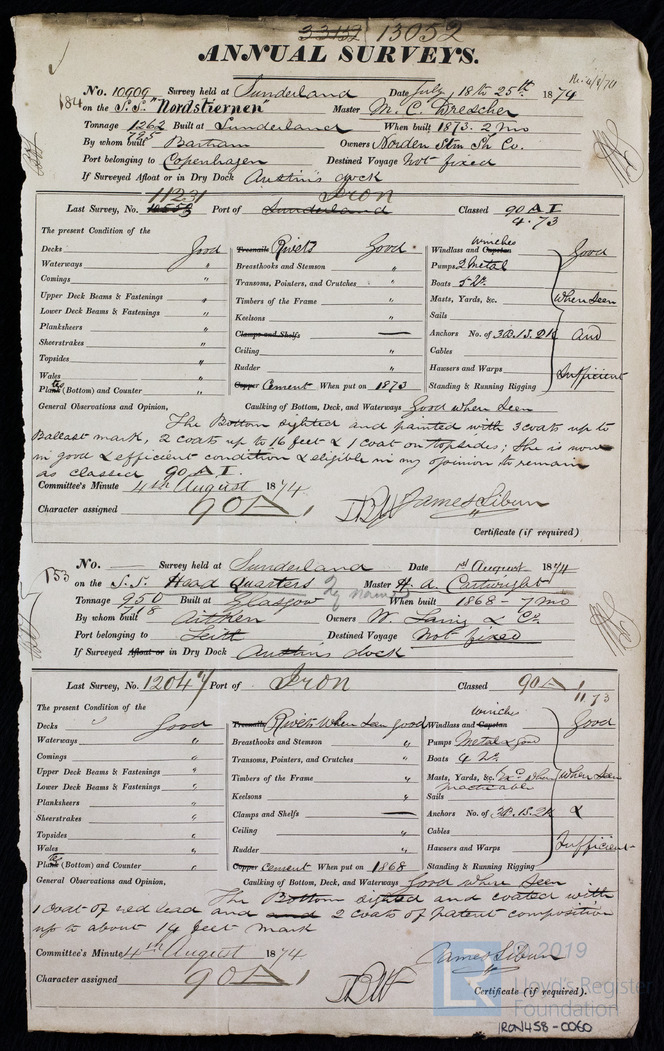 33152 13052
ANNUAL SURVEYS.
No. 10909 Survey held at Sunderland Date July 18 to 25th 1874
184 on the S.S. "Nordstiernen" Master M. C. Drescher
Tonnage 1262 Built at Sunderland When built 1873. 2 Mo
By whom built Bartram Owners Norden Stm Sh Co.
Port belonging to Copenhagen Destined Voyage Not fixed
If Surveyed Afloat or in Dry Dock Austin's dock
11231 Iron
Last Survey, No. Port of Sunderland Classed 90 A I
4.73
The present Condition of the
Decks Good
Waterways "
Comings "
Upper Deck Beams & Fastenings "
Lower Deck Beams & Fastenings "
Planksheers "
Sheerstrakes "
Topsides "
Wales "
Plank (Bottom) and Counter "
Treenails Rivets Good
Breasthooks and Stemson "
Transoms, Pointers, and Crutches "
Timbers of the Frame "
Keelsons "
Clamps and Shelfs
Ceiling "
Rudder "
Copper Cement When put on 1873
Windlass and Capstan Winches Good
Pumps 2 Metal
Boats 5
Masts, Yards, &c. When Seen
Sails
Anchors No. of 3B.1S.2K and
Cables
Hawsers and Warps Sufficient
Standing & Running Rigging
General Observations and Opinion, Caulking of Bottom, Deck, and Waterways Good when Seen
The Bottom sighted and painted with 3 coats up to
Ballast mark, 2 coats up to 16 feet & 1 coat on topsides; She is now
in good & efficient condition & eligible in my opinion to remain
as classed 90 A I.
Committee's Minute 4th August 1874
Character assigned 90 A 1 James Liburn
Certificate (if required)
No. Survey held at Sunderland Date 1st August 1874
153 on the S.S. Head Quarters Master H. A. Cartwright
Tonnage 950 Built at Glasgow When built 1868 - 7 Mo
By whom built Aitken Owners W. Laing & Co.
Port belonging to Leith Destined Voyage Not fixed
If Surveyed Afloat or in Dry Dock Austins dock
Last Survey, No. 12047 Port of Iron Classed 90 A 1
11 73
The present Condition of the
Decks Good
Waterways "
Comings "
Upper Deck Beams & Fastenings "
Lower Deck Beams & Fastenings "
Planksheers "
Sheerstrakes "
Topsides "
Wales "
Plank (Bottom) and Counter "
Treenails Rivets When Seen Good
Breasthooks and Stemson "
Transoms, Pointers, and Crutches "
Timbers of the Frame "
Keelsons "
Clamps and Shelfs
Ceiling "
Rudder "
Copper Cement When put on 1868
Windlass and Capstan Winches Good
Pumps Metal & good
Boats 4
Masts, Yards, &c. Exd. when When Seen
practicable
Sails
Anchors No. of 3B.1S.2K &
Cables
Hawsers and Warps Sufficient
Standing & Running Rigging
General Observations and Opinion, Caulking of Bottom, Deck, and Waterways Good when Seen
The Bottom sighted and coated with
1 Coat of red lead and and 2 coats of patent composition
up to about 14 feet mark
Committee's Minute 4th August 1874
James Liburn
Character assigned 90 A 1
Certificate (if required).
© 2019
Lloyd's Register
Foundation
IRON458-0060